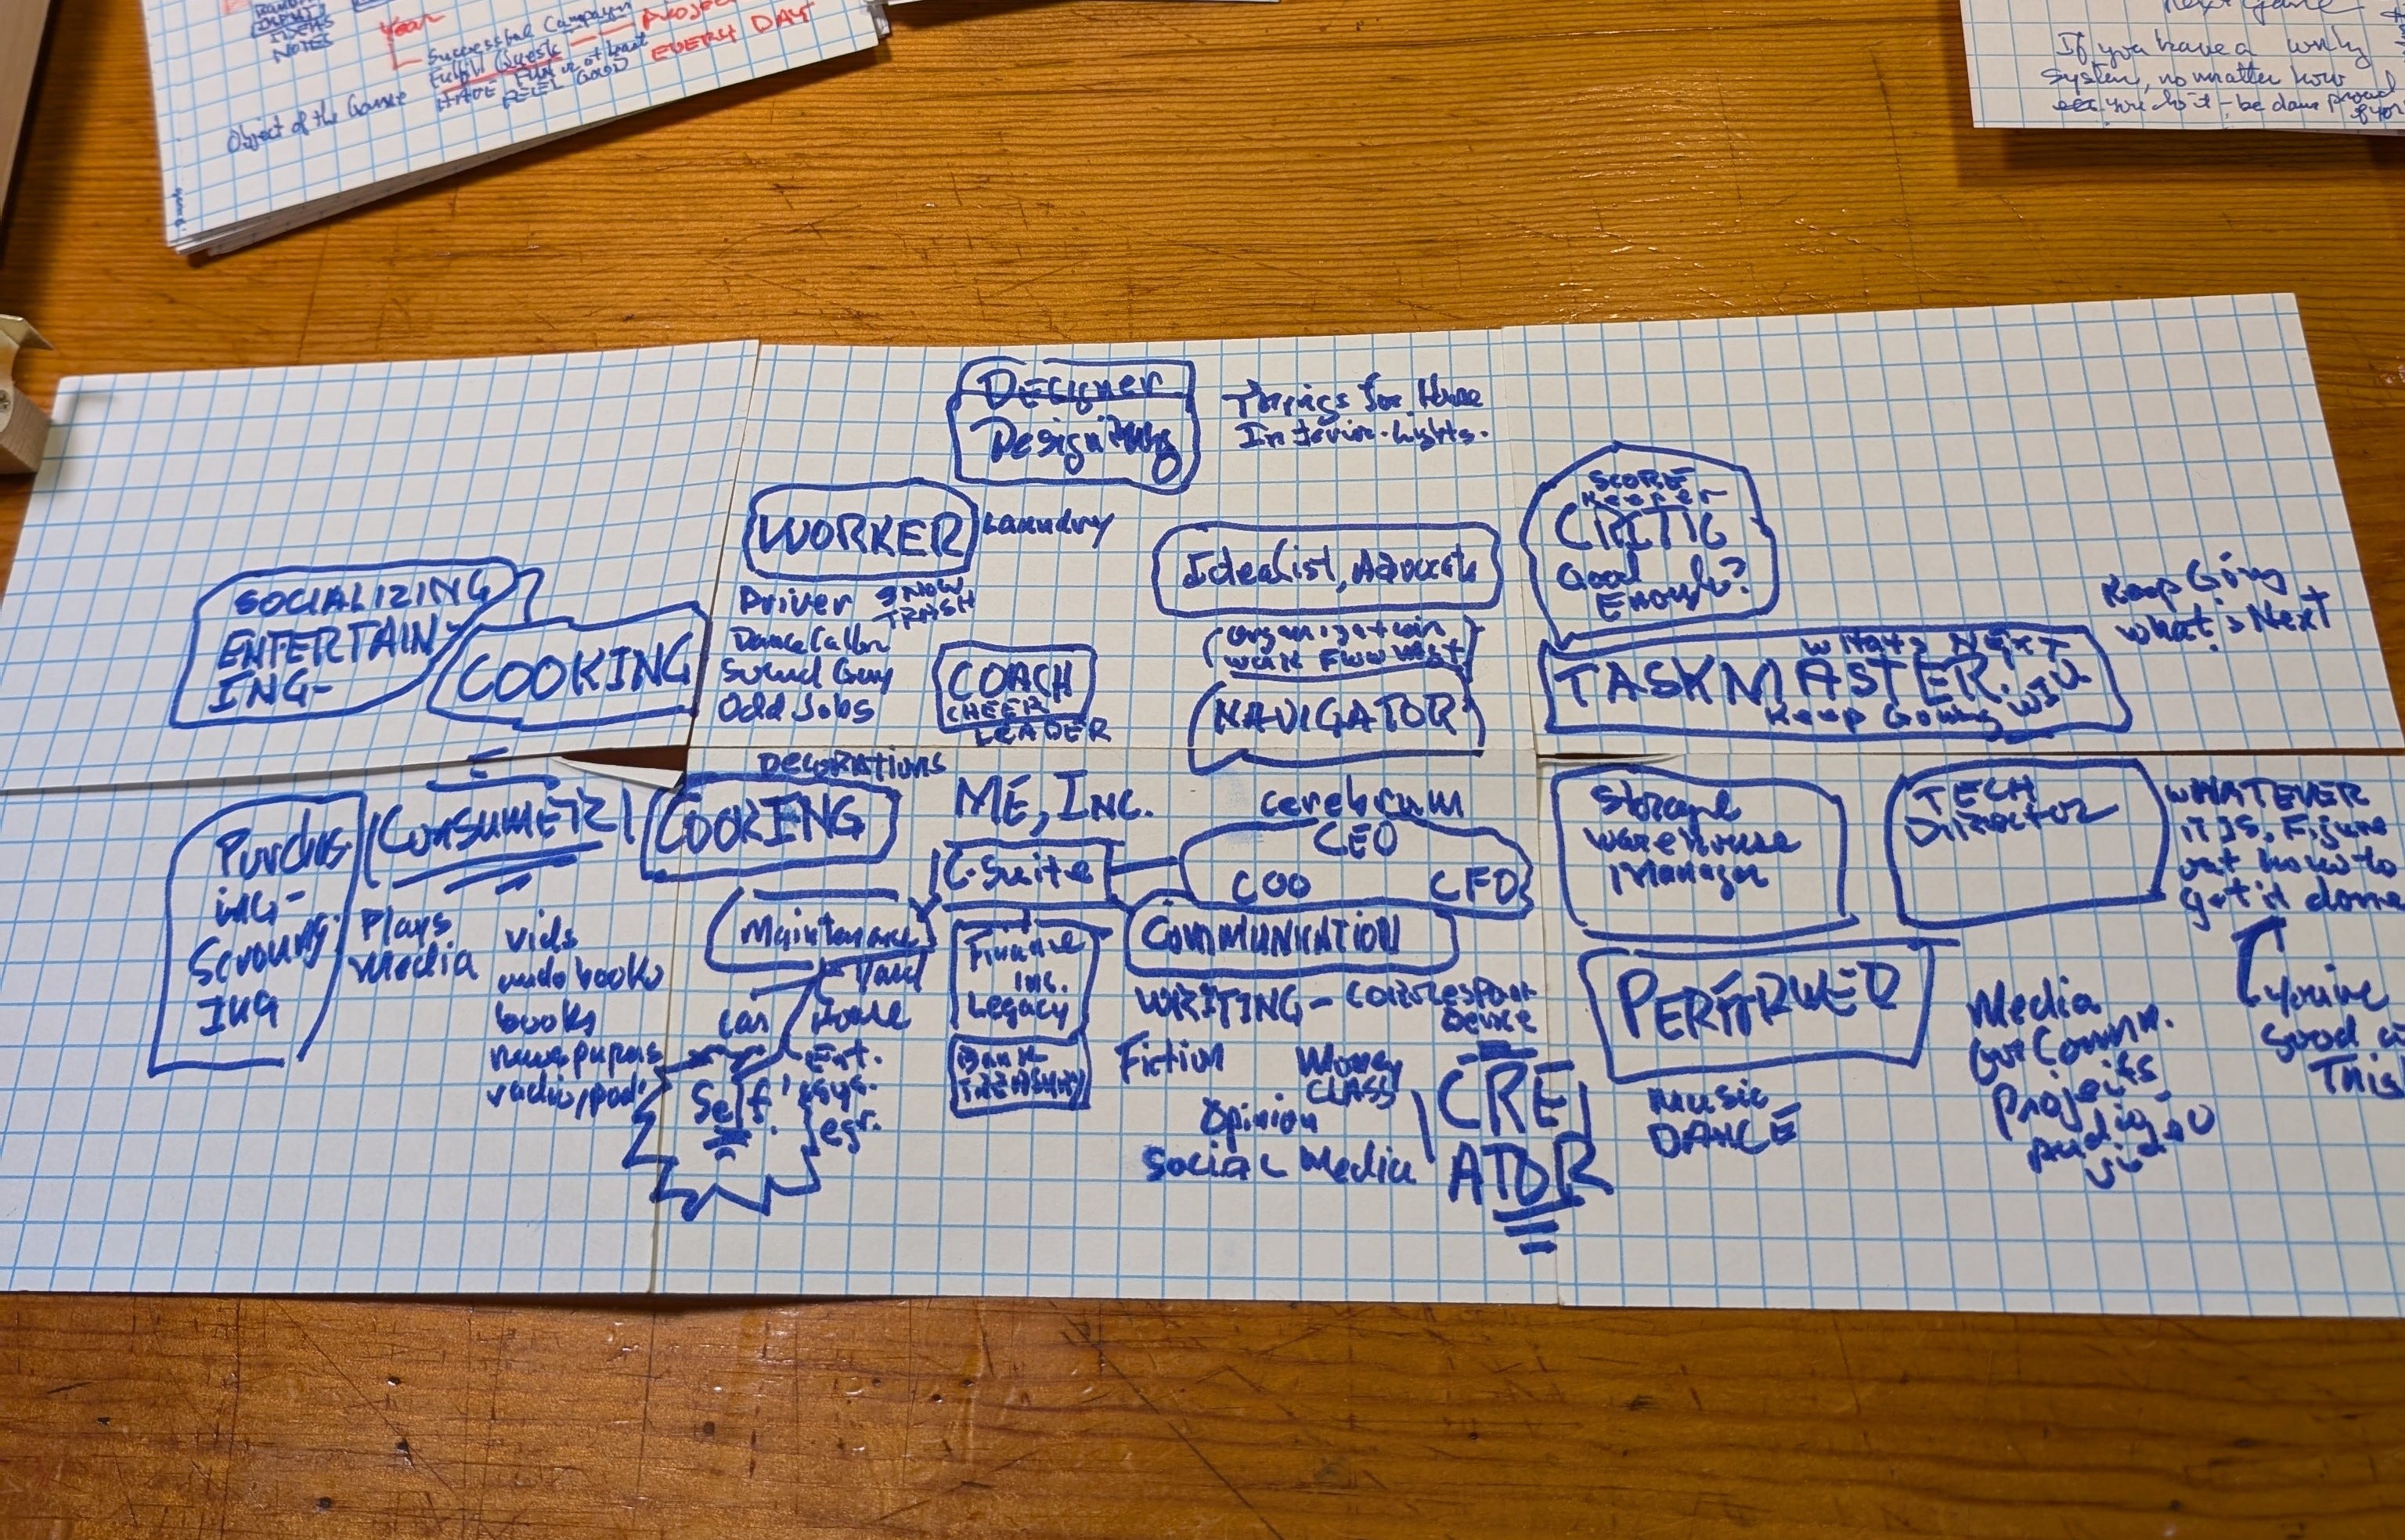 NOTES
Year
Successful Campaign
Fulfill Quests
HAVE FUN or at least
FEEL GOOD
EVERY DAY
Object of the Game
next game
If you have a
system, no matter how
you do it - be damn proud
Designer
Designing
Things for Home
Interior. Lights.
WORKER
Laundry
Driver
SNOW
TRASH
Dance Caller
Sound Guy
Odd Jobs
COACH
CHEER
LEADER
Idealist, Advocate
NAVIGATOR
SCORE
Keeper
CRITIC
Good
Enough?
What's Next
TASKMASTER
Keep Going
Keep Going
What's Next
SOCIALIZING
ENTERTAIN-
ING-
COOKING
Purchas-
ing-
Scroung-
ING
CONSUMER
Plays
Media
vids
audobooks
books
newspapers
radio/pod
Decorations
COOKING
ME, INC.
C-Suite
cerebrum
CEO
COO
CFO
Maintenance
Yard
car
House
Ext.
Self
sys.
Finance
inc.
Legacy
Bank
TREASURY
COMMUNICATION
WRITING-
Fiction
Money
CLASS
Opinion
Social Media
CRE
ATOR
Storage
warehouse
Manager
TECH
Director
WHATEVER
IT IS, Figure
out how to
get it done
you're
good a
This
PERFORMER
MUSIC
DANCE
Media
Projects
Audio
vid